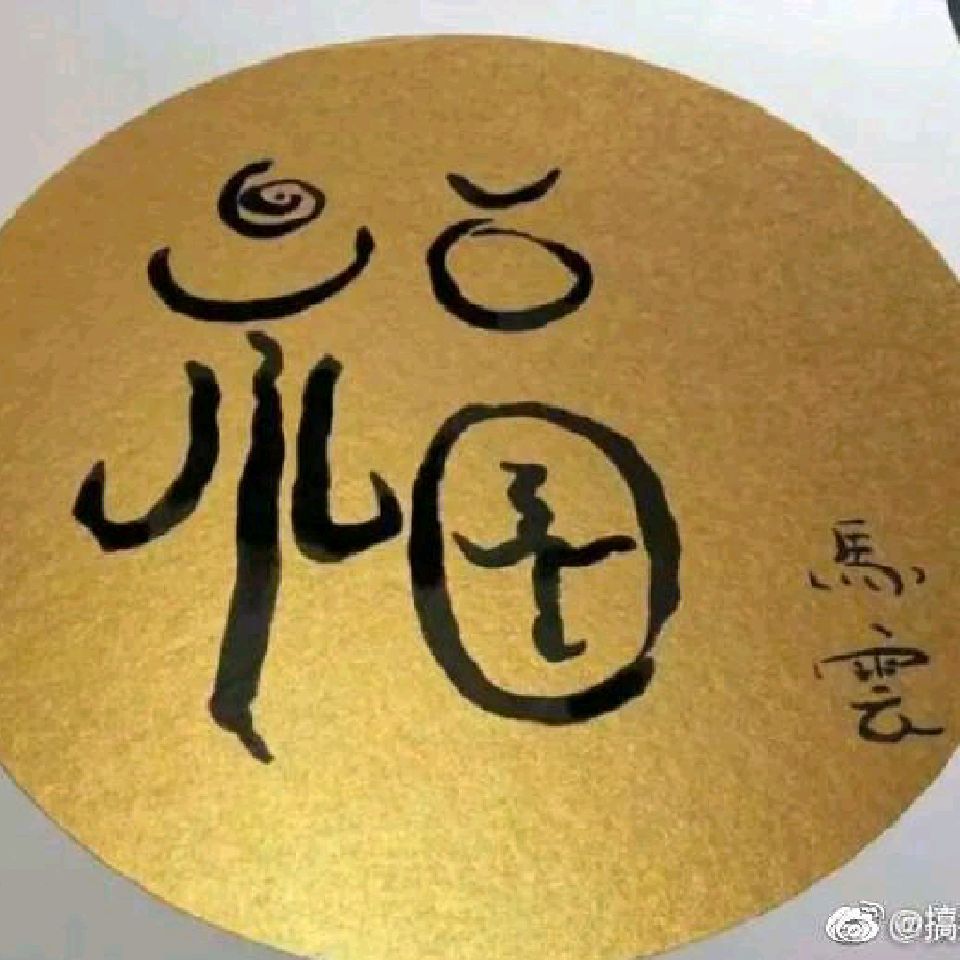 福
馬雲
@搞